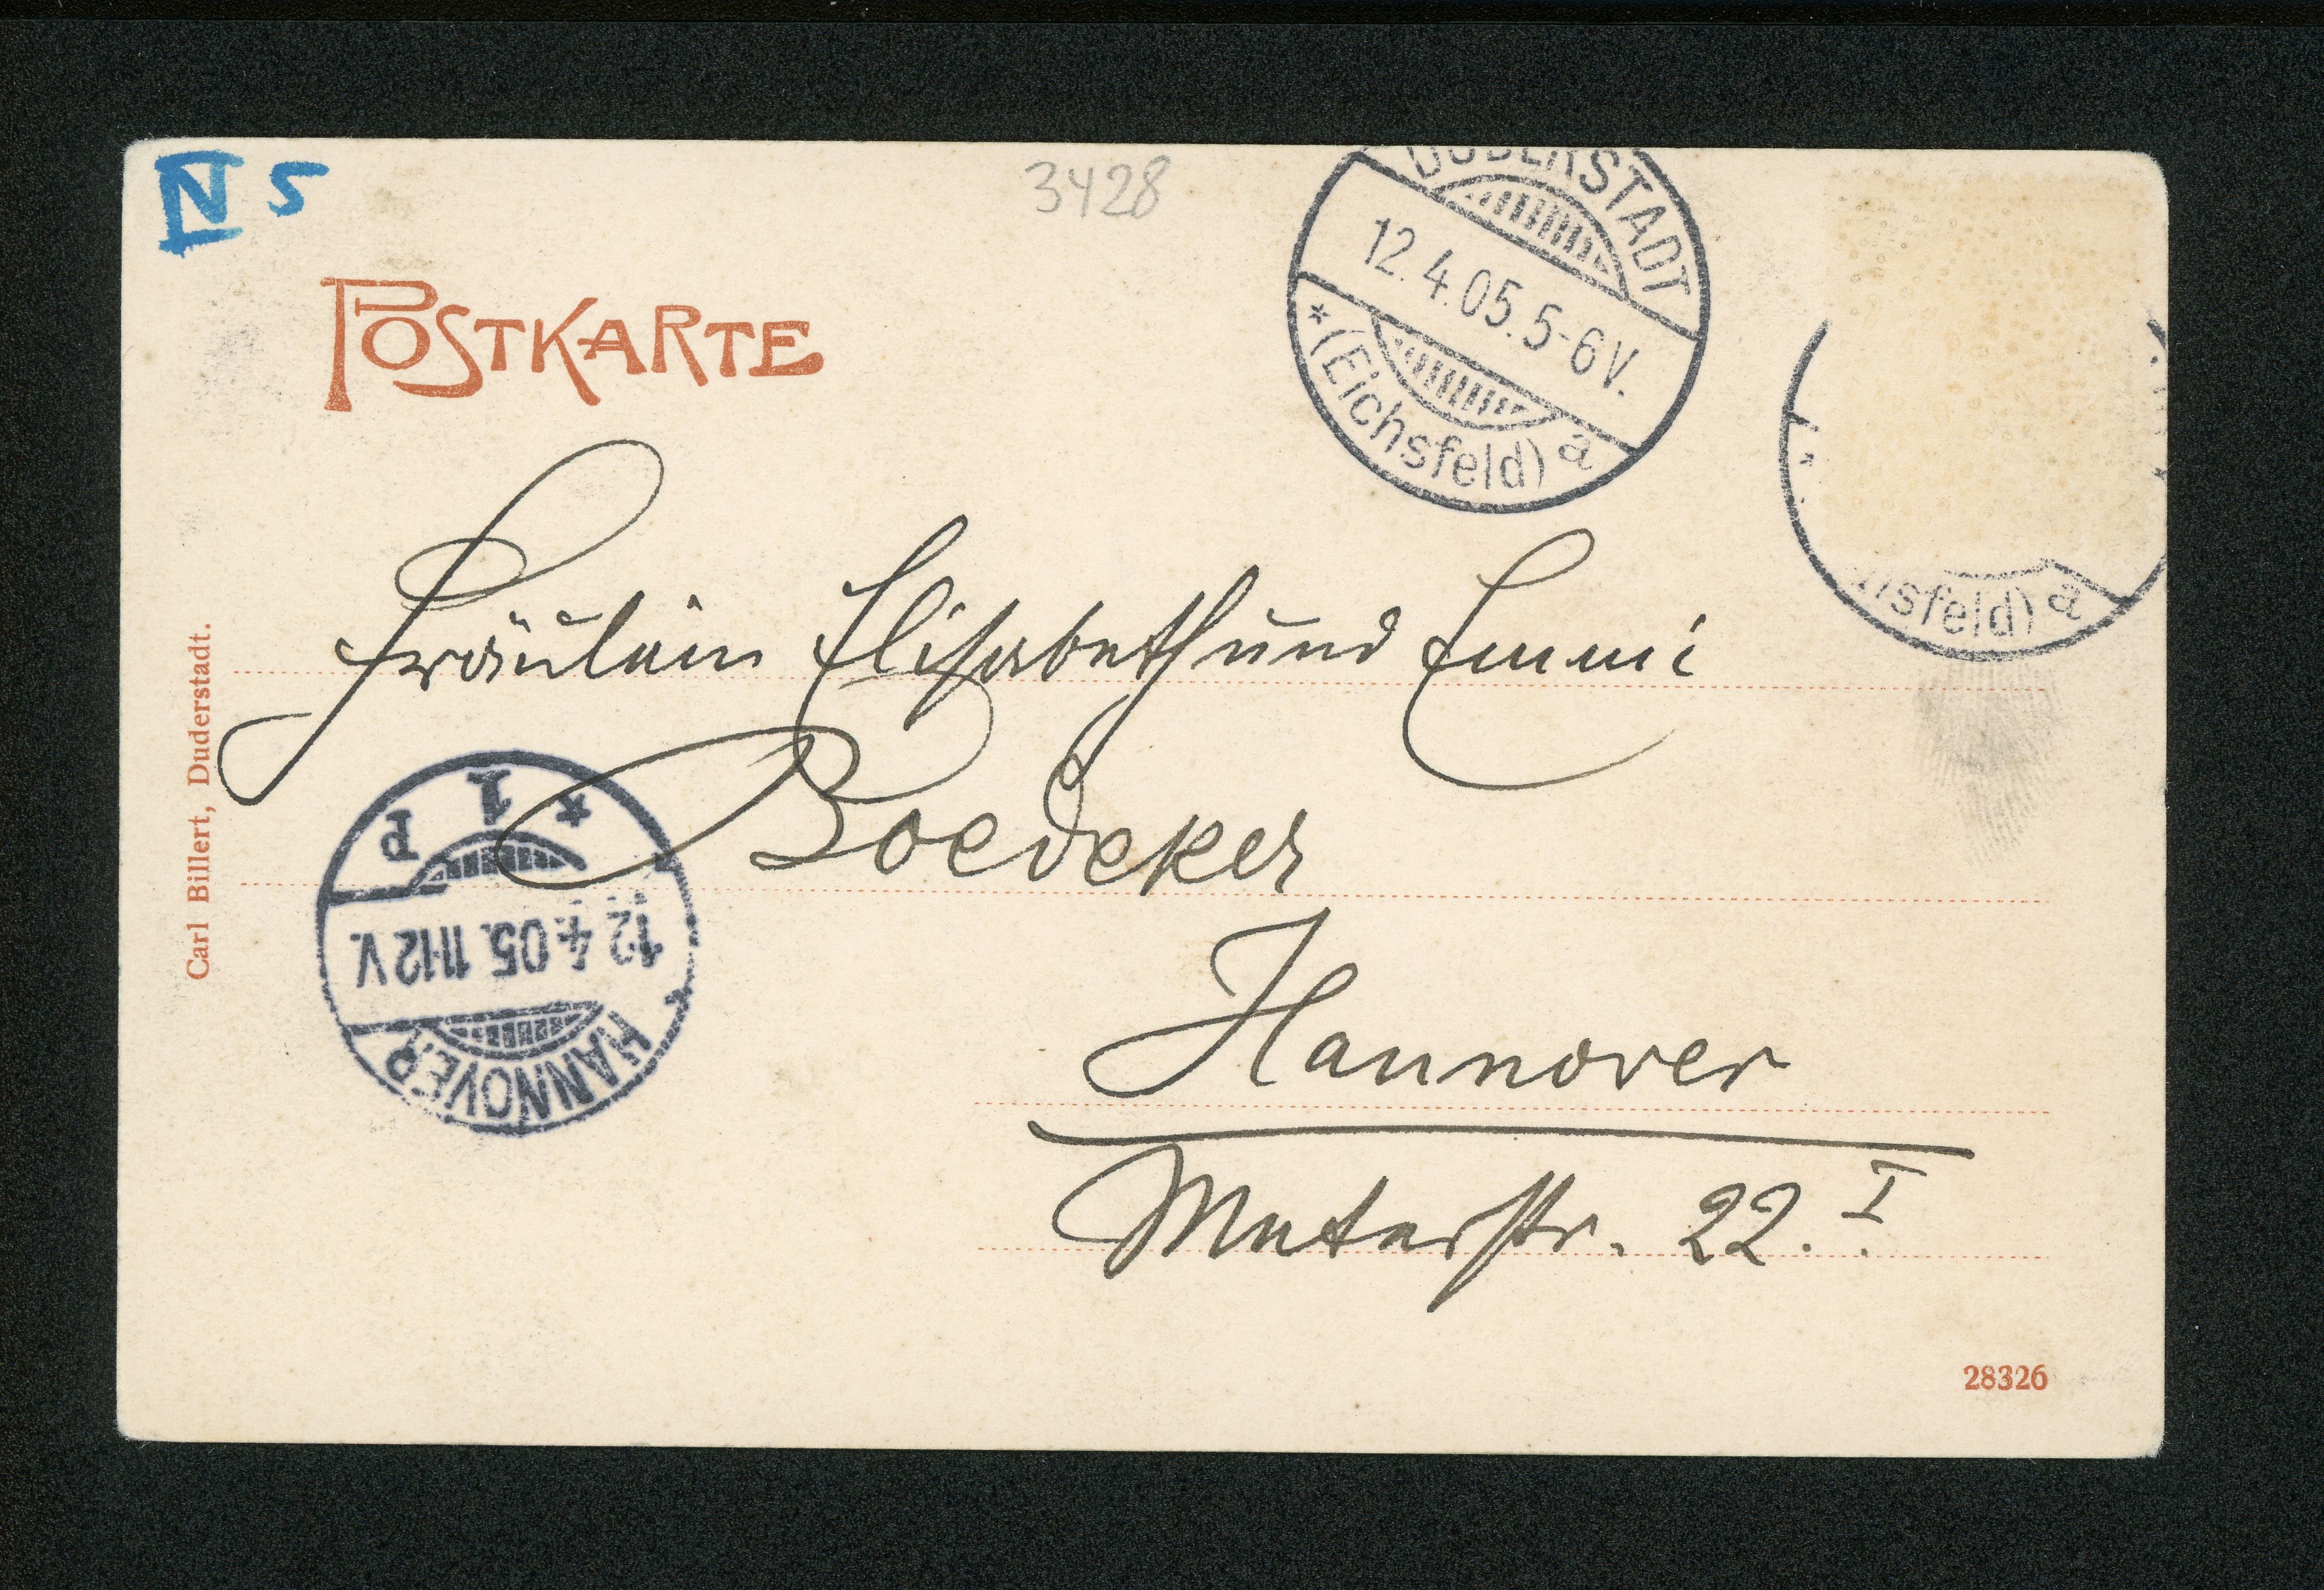 N 5
3428
DUDERSTADT
12.4.05.5-6V.
* (Eichsfeld) a
POSTKARTE
hsfeld) a
Fräulein Elisabeth und Emmi
Boedeker
Hannover
Carl Billert, Duderstadt.
* 1 p
12.4.05.11-12V.
HANNOVER
22. I.
28326